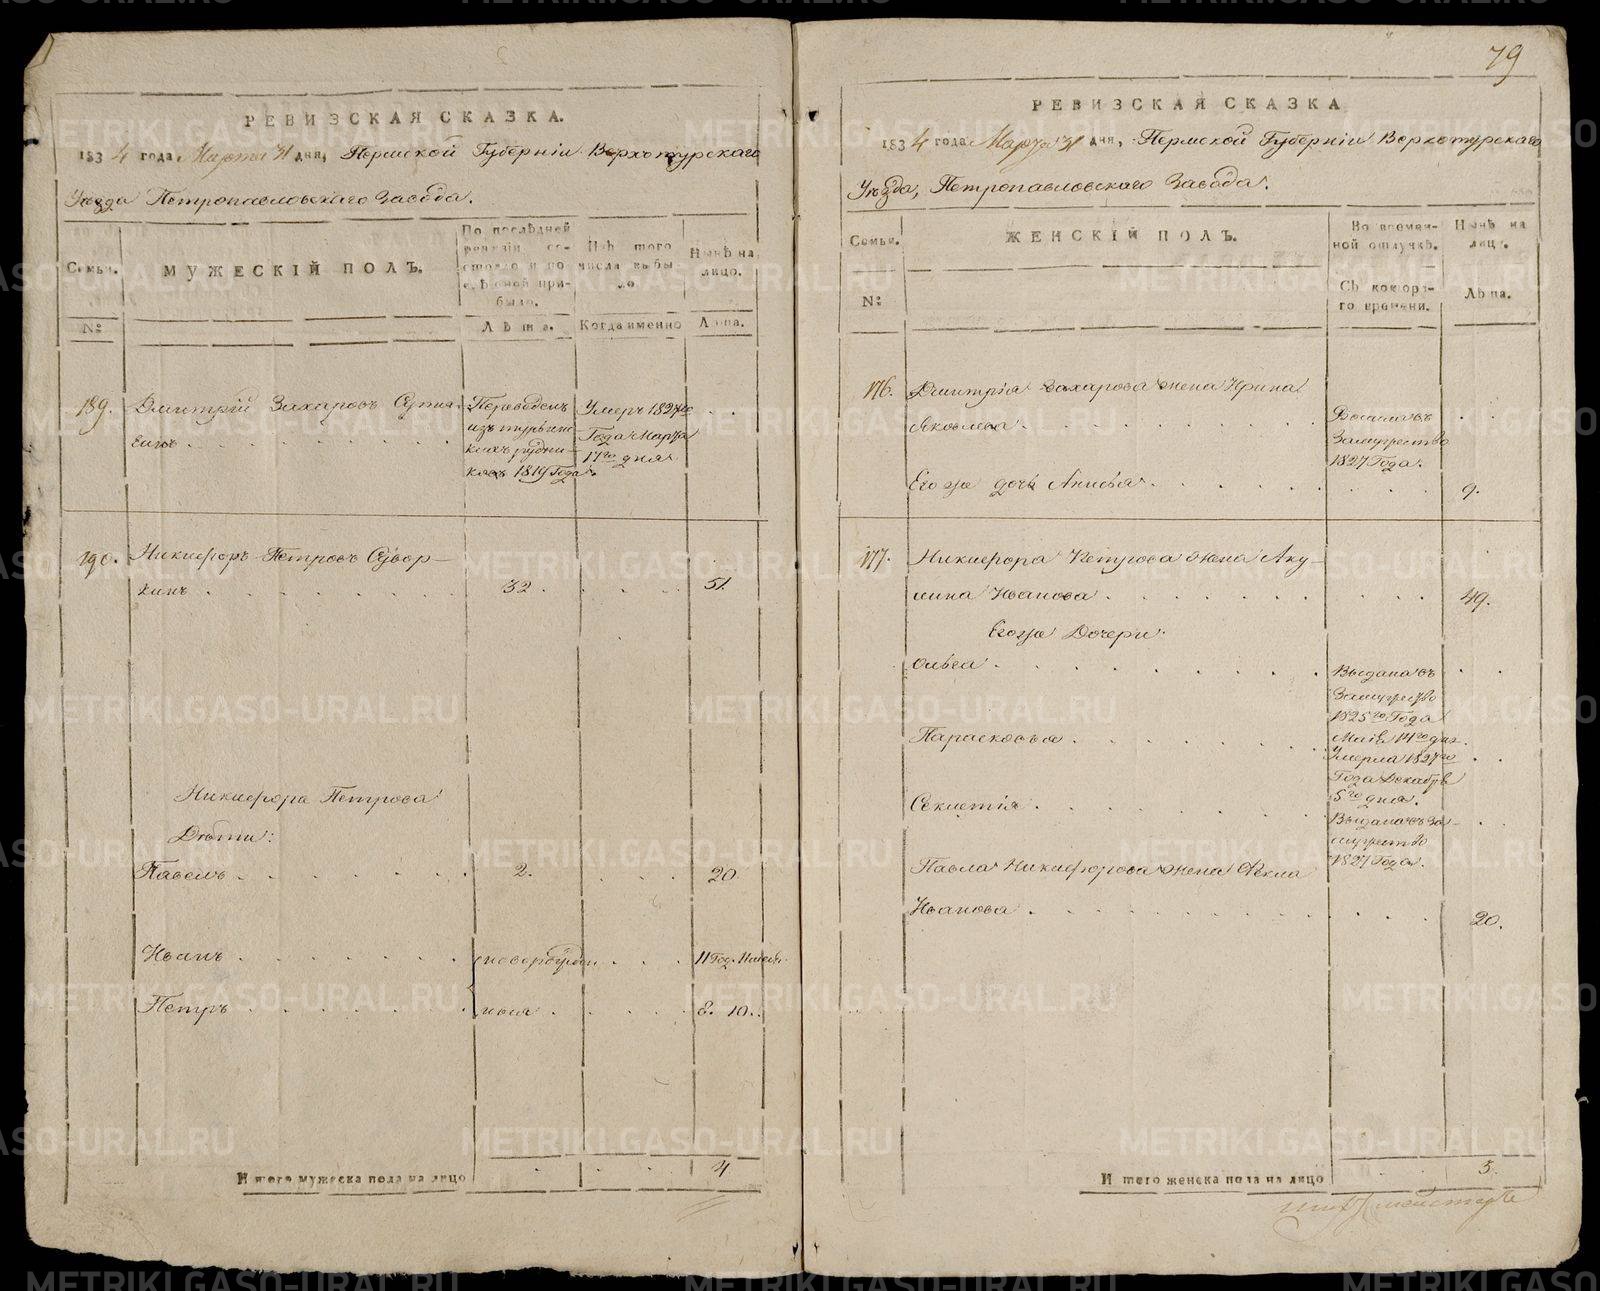 РЕВИЗСКАЯ СКАЗКА.
1834 года Марта 31 дня, Пермской Губерніи Верхотурскаго
Уѣзда Петропавловскаго Завода.
Семьи.
№
МУЖЕСКІЙ ПОЛЪ.
По послѣдней ревизіи состояло и послѣ оной прибыло.
Лѣта.
Изъ того числа выбыло
Когда именно
Нынѣ на лицо.
Лѣта.
189. Дмитрій Захаровъ
Переведенъ
изъ
1819 Года.
Умеръ 1827го
Года Марта
17го дня
190. Никифоръ Петровъ Сувор-
кинъ 32. 51.
Никифора Петрова
Дѣти:
Павелъ 2. 20.
Иванъ 11 Год. 11 месяц.
Петръ 8. 10.
новорожден
ныя
Итого мужеска пола на лицо 4
79
РЕВИЗСКАЯ СКАЗКА
1834 года Марта 31 дня, Пермской Губерніи Верхотурскаго
Уѣзда, Петропавловскаго Завода.
Семьи.
№
ЖЕНСКІЙ ПОЛЪ.
Во временной отлучкѣ.
Съ котораго времени.
Нынѣ на лицо.
Лѣта.
176. Дмитрія Захарова жена Ирина
Яковлева
замужество
1827 Года.
Его же дочь Анисья 9.
177. Никифора Петрова жена Аку-
лина Иванова 49.
Его же Дочери:
Ольга
Выдана въ
замужество
1825го Года
Парасковья
Маія 14го дня.
Умерла 1827го
Года Декабря
5го дня.
Секлетія
Выдана въ за-
мужество
1827 Года.
Павла Никифорова жена Фекла
Иванова 20.
Итого женска пола на лицо 3.
METRIKI.GASO-URAL.RU